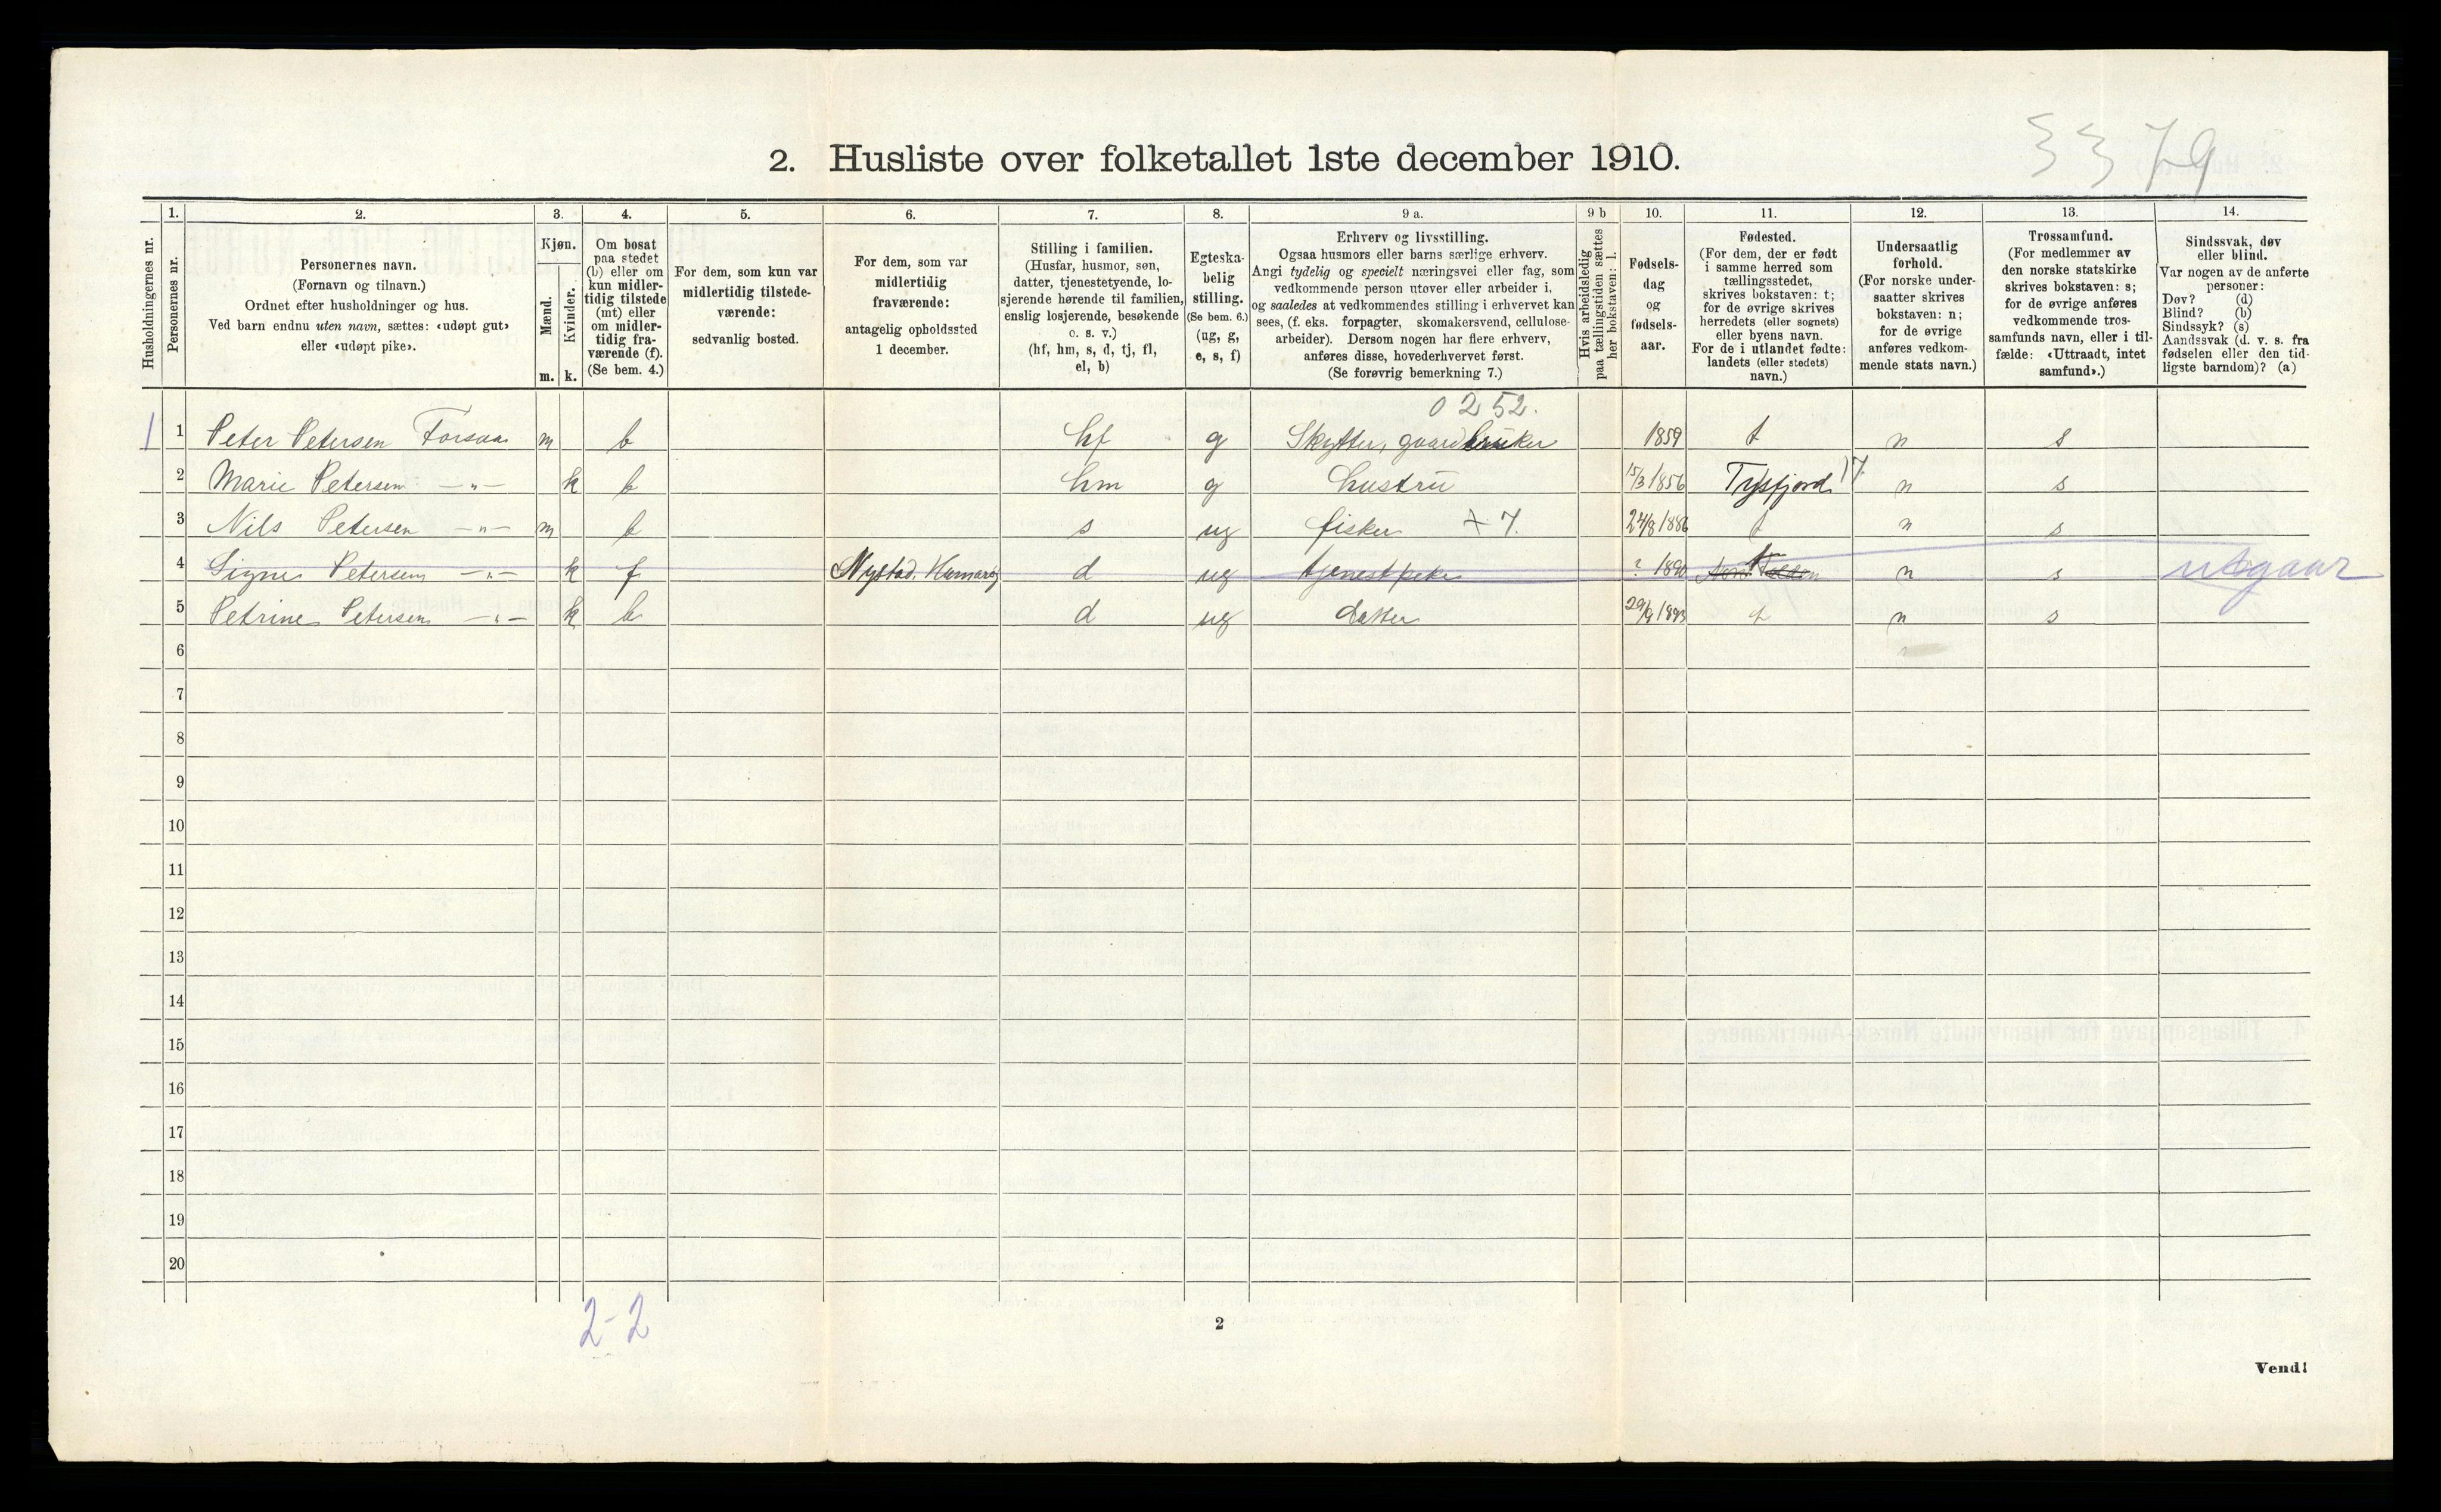 3379
2. Husliste over folketallet 1ste december 1910.
Husholdningernes nr.
1.
Personernes nr.
2.
Personernes navn.
(Fornavn og tilnavn.)
Ordnet efter husholdninger og hus.
Ved barn endnu uten navn, sættes: «udøpt gut»
eller «udøpt pike».
3.
Kjøn.
Mænd.
Kvinder.
m. k.
4.
Om bosat
paa stedet
(b) eller om
kun midler-
tidig tilstede
(mt) eller
om midler-
tidig fra-
værende (f).
(Se bem. 4.)
5.
For dem, som kun var
midlertidig tilstede-
værende:
sedvanlig bosted.
6.
For dem, som var
midlertidig
fraværende:
antagelig opholdssted
1 december.
7.
Stilling i familien.
(Husfar, husmor, søn,
datter, tjenestetyende, lo-
sjerende hørende til familien,
enslig losjerende, besøkende
o. s. v.)
(hf, hm, s, d, tj, fl,
el, b)
8.
Egteska-
belig
stilling.
(Se bem. 6.)
(ug, g,
e, s, f)
9 a.
Erhverv og livsstilling.
Ogsaa husmors eller barns særlige erhverv.
Angi tydelig og specielt næringsvei eller fag, som
vedkommende person utøver eller arbeider i,
og saaledes at vedkommendes stilling i erhvervet kan
sees, (f. eks. forpagter, skomakersvend, cellulose-
arbeider). Dersom nogen har flere erhverv,
anføres disse, hovederhvervet først.
(Se forøvrig bemerkning 7.)
9 b
Hvis arbeidsledig
paa tællingstiden sættes
her bokstaven: l.
10.
Fødsels-
dag
og
fødsels-
aar.
11.
Fødested.
(For dem, der er født
i samme herred som
tællingsstedet,
skrives bokstaven: t;
for de øvrige skrives
herredets (eller sognets)
eller byens navn.
For de i utlandet fødte:
landets (eller stedets)
navn.)
12.
Undersaatlig
forhold.
(For norske under-
saatter skrives
bokstaven: n;
for de øvrige
anføres vedkom-
mende stats navn.)
13.
Trossamfund.
(For medlemmer av
den norske statskirke
skrives bokstaven: s;
for de øvrige anføres
vedkommende tros-
samfunds navn, eller i til-
fælde: «Uttraadt, intet
samfund».)
14.
Sindssvak, døv
eller blind.
Var nogen av de anførte
personer:
Døv? (d)
Blind? (b)
Sindssyk? (s)
Aandssvak (d. v. s. fra
fødselen eller den tid-
ligste barndom)? (a)
0252.
1 1 Peter Petersen Forsaa m b hf g Skytter, gaardbruker 1859 t n s
2 Marie Petersen —"— k b hm g hustru 15/3 1856 Tysfjord 17. n s
3 Nils Petersen —"— m b s ug fisker 7. 24/8 1886 t n s
4 Signe Petersen —"— k f Nystad, Hamarøy d ug tjenestpike ? 1890 t n s utgaar
5 Petrine Petersen —"— k b d ug datter 29/9 1893 t n s
6
7
8
9
10
11
12
13
14
15
16
17
18
19
20
2-2
2
Vend!